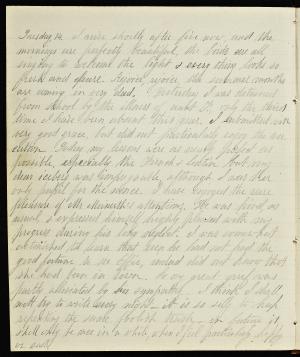 Tuesday 14. I arise shortly after five now, and the
mornings are perfectly beautiful, the birds are all
singing to welcome the light & every thing looks so
fresh and pure. Rejoice, rejoice the summer months
are coming in very deed. Yesterday I was detained
from school by the illness of aunt H. only the third
time I have been absent this year. I submitted with
very good grace, but did not particularly enjoy the
Today my lessons were as nearly perfect as
possible, especially the French lesson but my
dear was although I was the
only pupil for the science. I have enjoyed the rare
pleasure of Mr. attentions. He was kind, as
usual, & expressed himself highly pleased with my
progress during his late neglect. I was somewhat
astonished to learn that he had not had the
good fortune to see Effie, indeed did not know that
she had been in town. So my great grief was
partly alleviated by sympathy. I think I shall
not try to write every night - it is so silly to keep
repeating the same foolish trash - in future it
shall only be once in a while, when I feel particularly happy
or sad.